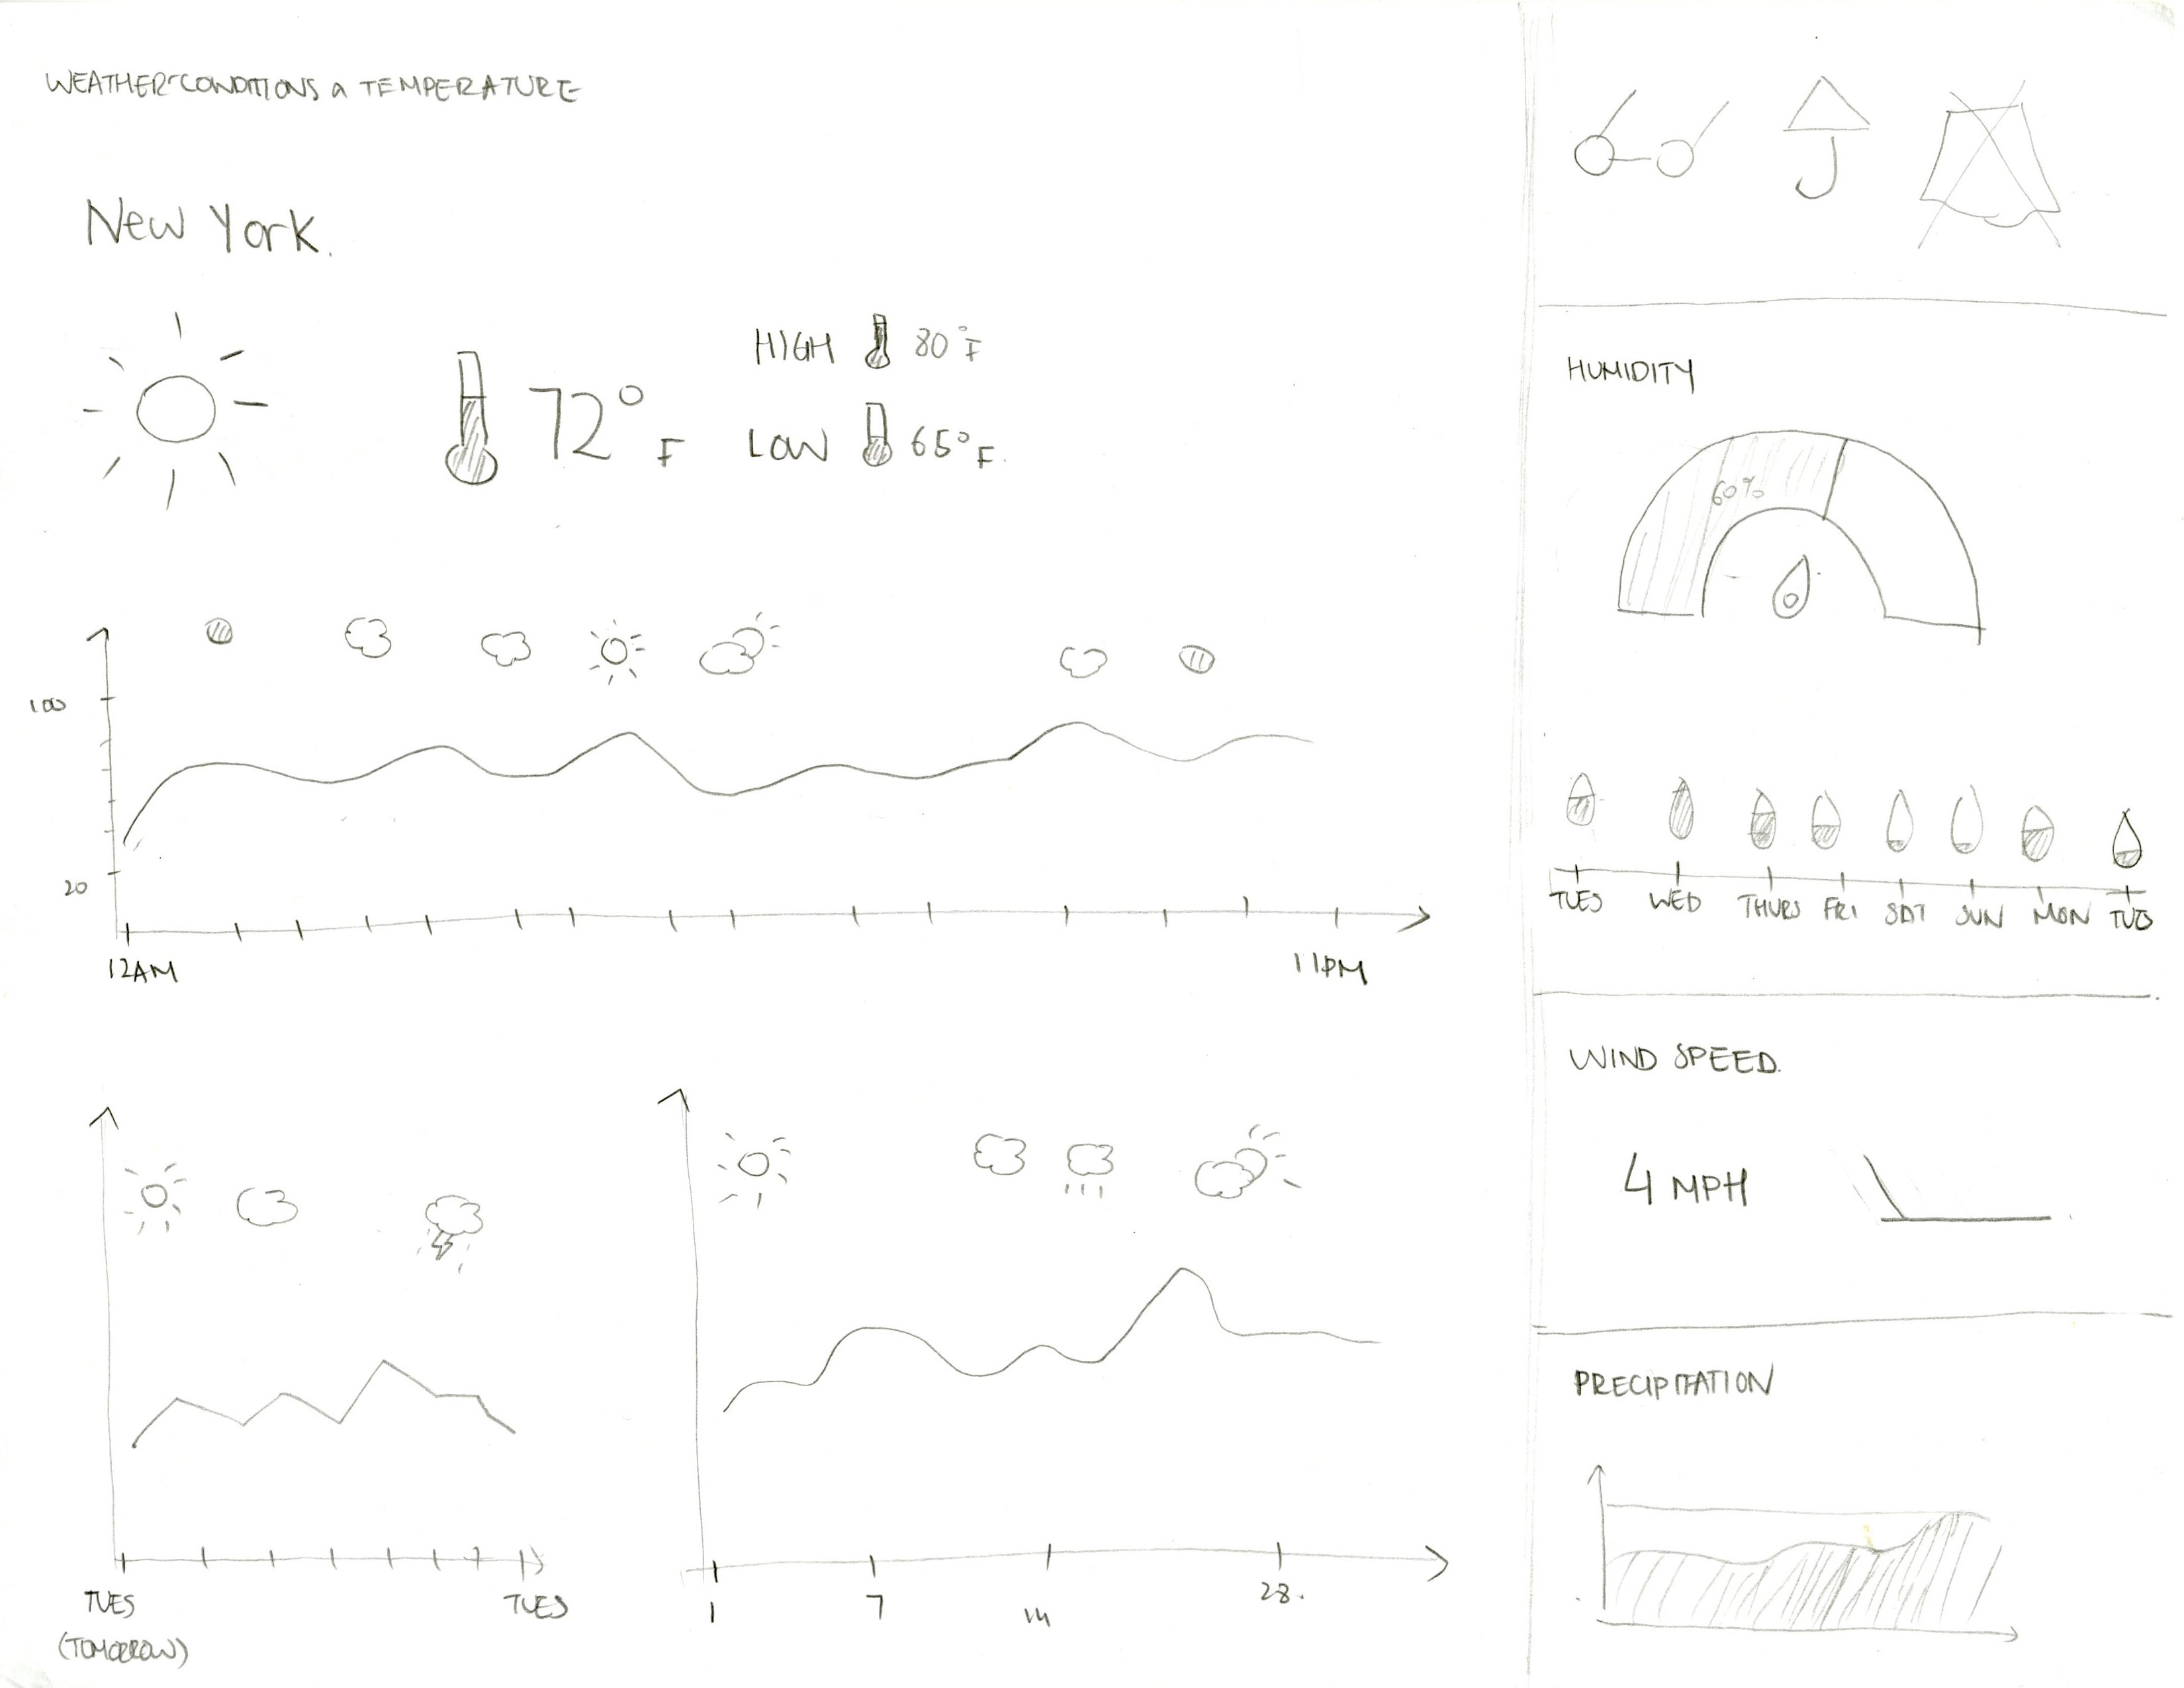 WEATHER CONDITIONS & TEMPERATURE
New York.
72° F
HIGH 80°F
LOW 65°F.
100
20
12AM
11PM
TUES
(TOMORROW)
TUES
1
7
14
28.
HUMIDITY
60%
TUES WED THURS FRI SAT SUN MON TUES
WIND SPEED.
4 MPH
PRECIPITATION